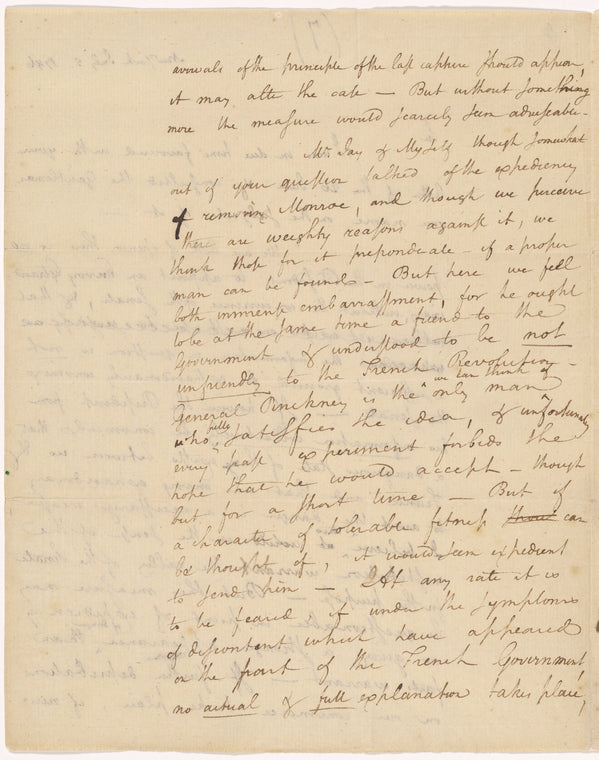 avowals of the principle of the last capture should appear,
it may alter the case — But without something
more the measure would scarcely seem adviseable —
Mr. Jay & Myself though somewhat
out of your question talked of the expediency
of removing Monroe, and though we perceive
there are weighty reasons against it, we
think those for it preponderate — if a proper
man can be found — But here we feel
both immense embarrassment, for he ought
to be at the same time a friend to the
Government & understood to be not
unfriendly to the French Revolution —
General Pinckney is the only man we can think of
who fully satisfies the idea, & unfortunately
every past experiment forbids the
hope that he would accept — though
but for a short time — But if
a character of tolerable fitness can
be thought of, it would seem expedient
to send him — At any rate it is
to be feared if under the symptoms
of discontent which have appeared
on the part of the French Government,
no actual & full explanation takes place,